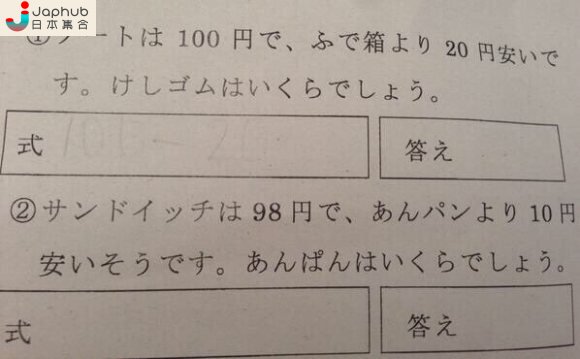 Japhub
日本集合
①ノートは 100 円で、ふで箱より 20 円安いで
す。けしゴムはいくらでしょう。
式
答え
②サンドイッチは 98 円で、あんパンより 10円
安いそうです。あんぱんはいくらでしょう。
式
答え